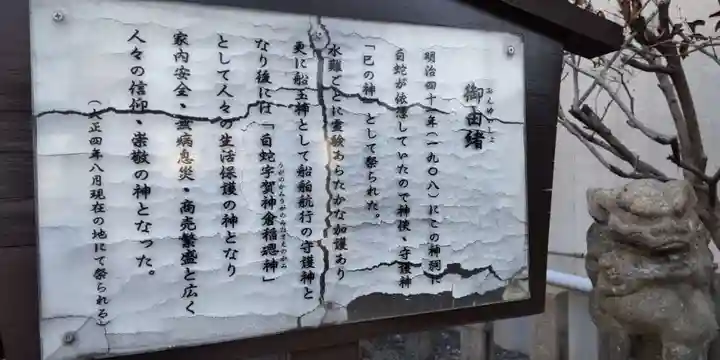 御由緒
おんゆいしょ
明治四十年(一九〇八)にこの神祠に
白蛇が依憑していたので神使、守護神
「巳の神」として祭られた。
水難ごとに霊験あらたかな加護あり
更に船玉神として船舶航行の守護神と
なり後には「白蛇宇賀神倉稲魂神」
うがのかみうがのみたまえのかみ
として人々の生活保護の神となり
家内安全、無病息災、商売繁盛と広く
人々の信仰、崇敬の神となった。
(大正四年八月現在の地にて祭られる)